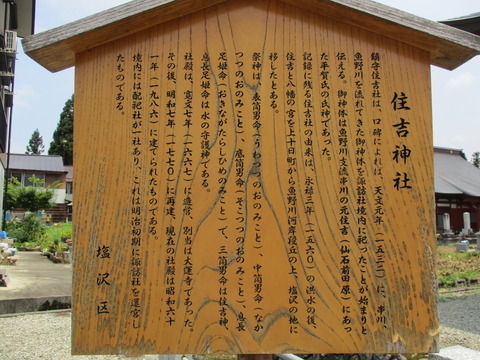 住吉神社
鎮守住吉社は、口碑によれば、天文元年（一五三二）に、串川、
魚野川を流れてきた御神体を諏訪社境内に祀ったことが始まりと
伝える。御神体は魚野川支流串川の元住吉（仙石前田原）にあっ
た平賀氏の氏神であった。
記録に残る住吉社の由来は、永禄三年（一五六〇）の洪水の後、
住吉と八幡の宮を上十日町から魚野川河岸段丘の上、塩沢の地に
移したとある。
祭神は、表筒男命（うわつつのおのみこと）、中筒男命（なか
つつのおのみこと）、底筒男命（そこつつのおのみこと）、息長
足姫命（おきながたらしひめのみこと）で、三筒男命は住吉神、
息長足姫命は水の守護神である。
社殿は、寛文七年（一六六七）に造営、別当は大運寺であった。
その後、明和七年（一七七〇）に再建、現在の社殿は昭和六十
一年（一九八六）に建てられたものである。
境内には配祀社が一社あり、これは明治初期に諏訪社を遷宮し
たものである。
塩沢区